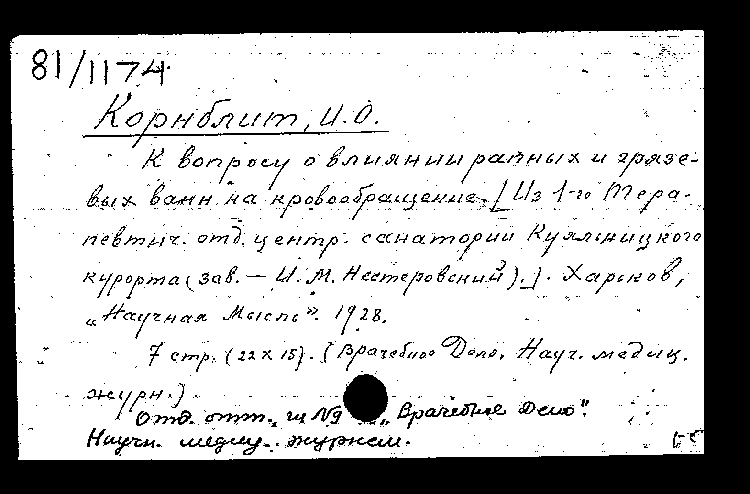 81/1174
Корнблит, И.О.
К вопросу о влиянии рапных и грязе-
вых ванн на кровообращение. [Из 1-го Тера-
певтич. отд. центр. санатории Куяльницкого
курорта (зав. – И.М. Нестеровский).]. Харьков,
„Научная Мысль". 1928.
7 стр. (22х15). (Врачебное Дело. Науч. медиц.
журн.)
Отд. отт. из №9 „Врачебное Дело".
Научн. медиц. журнал.